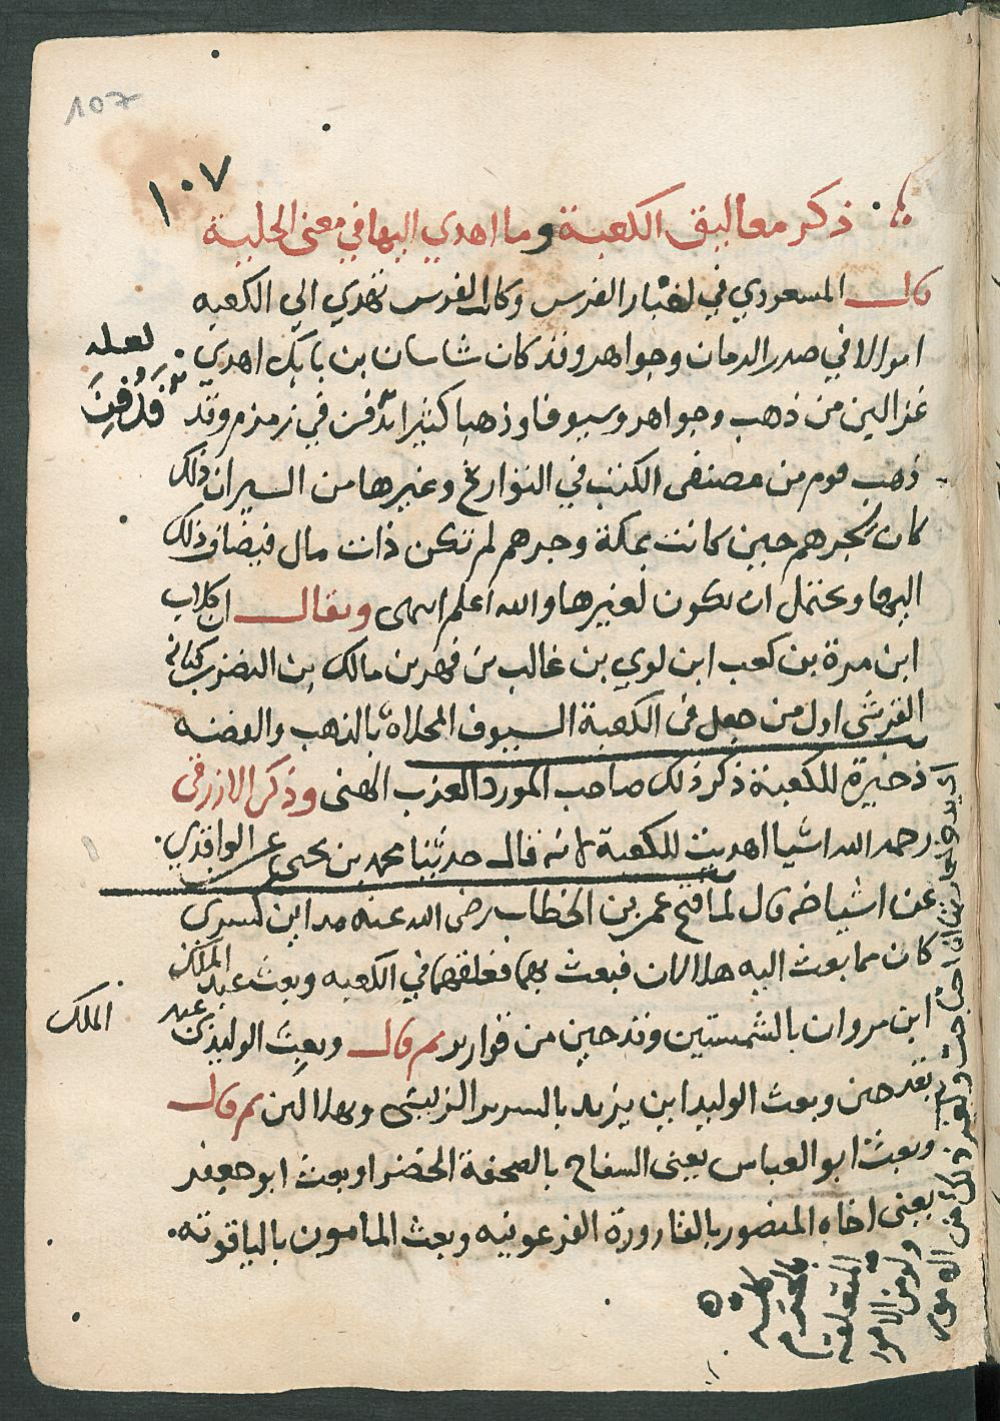 107
١٠٧
ذكر معاليق الكعبة وما اهدي اليها في معنى الحلية
قال المسعودي في اخبار الفرس وكان الفرس تهدي الي الكعبه
اموالا في صدر الزمان وجواهر وقد كان شاسان بن بابك اهدي
غزالين من ذهب وجواهر وسيوفا وذهبا كثيرا فدفن في زمزم وقد
ذهب قوم من مصنفى الكتب في التواريخ وغيرها من السير ان ذلك
كان لجرهم حين كانت بمكة وجرهم لم تكن ذات مال فيضاف ذلك
اليها ويحتمل ان يكون لغيرها والله اعلم انتهى ويقال ان كلاب
ابن مرة بن كعب ابن لوي بن غالب بن فهر بن مالك بن النضر بن كنانه
القرشى اول من جعل في الكعبة السيوف المحلاه بالذهب والفضه
ذخيرة للكعبة ذكر ذلك صاحب المورد العذب الهنى وذكر الازرقى
رحمه الله اشيا اهديت للكعبة لانه قال حدثنا محمد بن يحيى عن الواقدي
عن اشياخه قال لما فتح عمر بن الخطاب رضى الله عنه مداين كسرى
كان مما بعث اليه هلالان فبعث بهما فعلقهما في الكعبه وبعث عبد الملك
ابن مروان بالشمستين وقدحين من قوارير ثم قال وبعث الوليد بن عبد
بقدحين وبعث الوليد ابن يزيد بالسرير الزينبى وبهلالين ثم قال
وبعث ابو العباس يعنى السفاح بالصحفة الخضرا وبعث ابو جعفر
يعنى اخاه المنصور بالقارورة الفرعونيه وبعث المامون بالياقوته
لعله
فدفن
الملك
ولو من الامور
المتعلقة